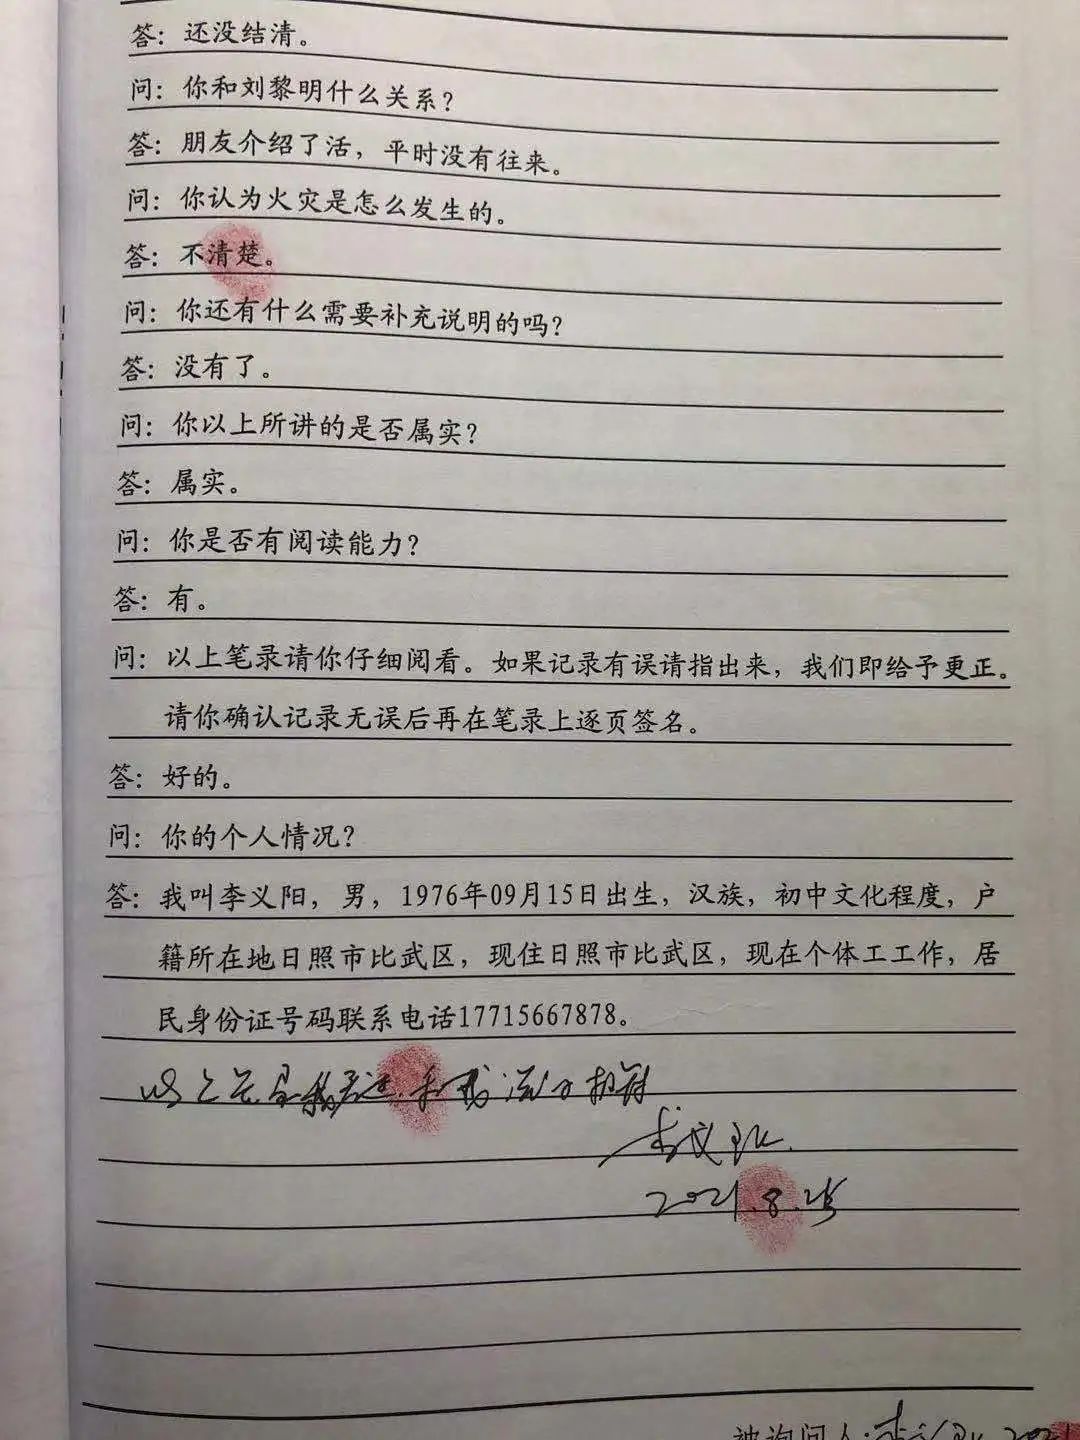 答：还没结清。
问：你和刘黎明什么关系？
答：朋友介绍了活，平时没有往来。
问：你认为火灾是怎么发生的。
答：不清楚。
问：你还有什么需要补充说明的吗？
答：没有了。
问：你以上所讲的是否属实？
答：属实。
问：你是否有阅读能力？
答：有。
问：以上笔录请你仔细阅看。如果记录有误请指出来，我们即给予更正。
请你确认记录无误后再在笔录上逐页签名。
答：好的。
问：你的个人情况？
答：我叫李义阳，男，1976年09月15日出生，汉族，初中文化程度，户
籍所在地日照市比武区，现住日照市比武区，现在个体工工作，居
民身份证号码联系电话17715667878。
以上
2021.8.25
被询问人：